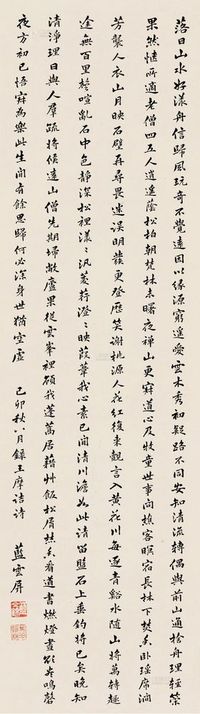 落日山水好漾舟信歸風玩奇不覺遠因以緣源窮遙愛雲木秀初疑路不同安知清流轉偶與前山通捨舟理輕策
果然愜所適老僧四五人逍遙蔭松柏朝梵林未曙夜禪山更寂道心及牧童世事問樵客暝宿長林下焚香臥瑤席澗
芳襲人衣山月映石壁再尋畏迷誤明發更登歷笑謝桃源人花紅復來覿言入黃花川每逐青谿水隨山將萬轉趣
途無百里聲喧亂石中色靜深松裡漾〻汎菱荇澄〻映葭葦我心素已閒清川澹如此請留盤石上垂釣將已矣晚知
清淨理日與人群疏將候遠山僧先期掃敝廬果從雲峯裡顧我蓬蒿居藉艸飯松屑焚香看道書燃燈晝欲盡鳴磬
夜方初已悟寂為樂此生閒有餘思歸何必深身世猶空虛 己卯秋八月錄王摩詰詩 藍雲屏